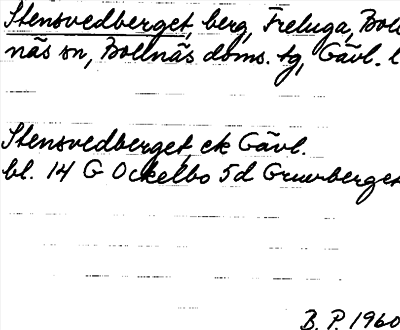 Stensvedberget, berg, Freluga, Boll
näs sn, Bollnäs doms. tg, Gävl. l
Stensvedberget, ek Gävl.
bl. 14 G Ockelbo 5d Gruvberget
B. P. 1960